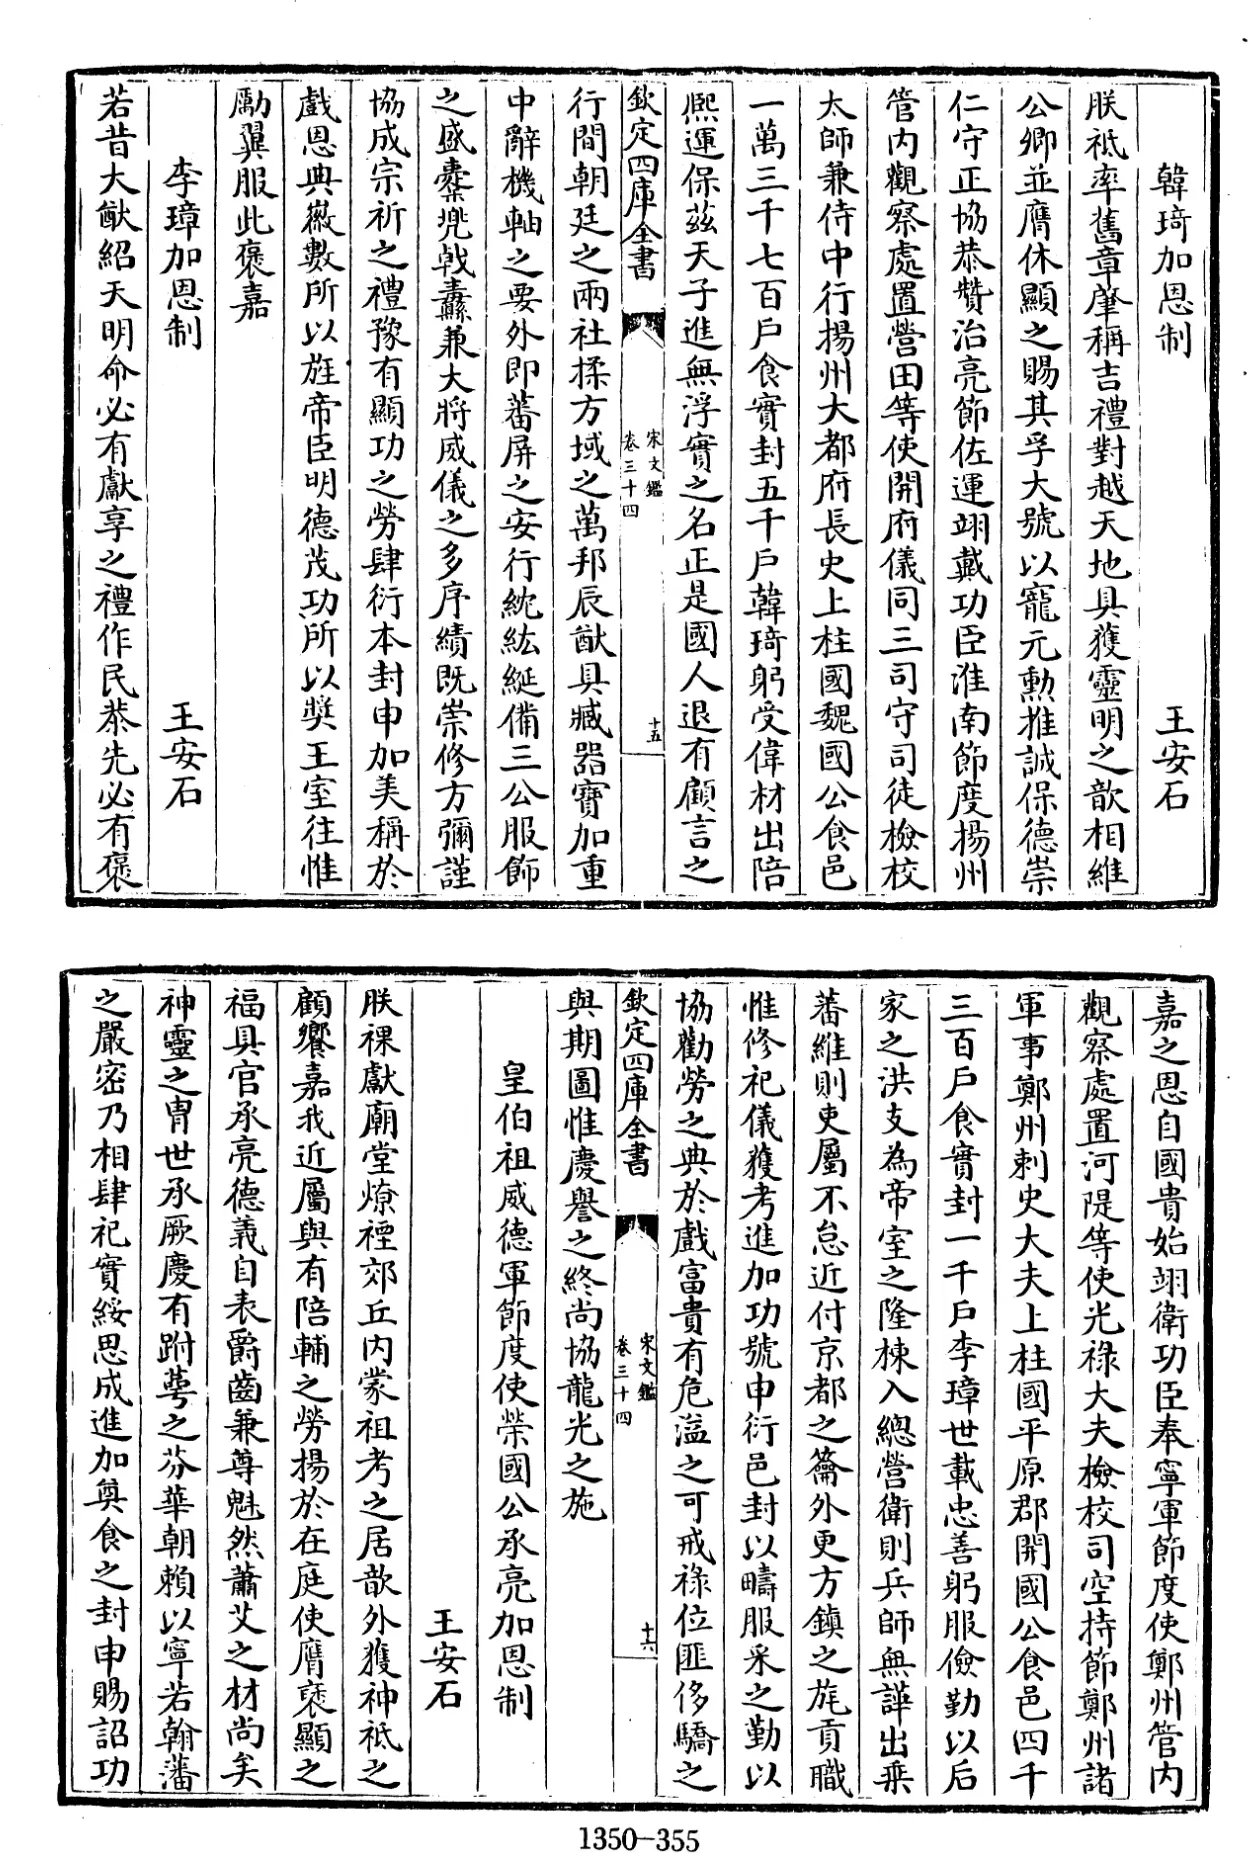 韓琦加恩制 王安石
朕祗率舊章肇稱吉禮對越天地具獲靈明之歆相維
公卿並膺休顯之賜其孚大號以寵元勲推誠保德崇
仁守正協恭贊治亮節佐運翊戴功臣淮南節度揚州
管内觀察處置營田等使開府儀同三司守司徒檢校
太師兼侍中行揚州大都府長史上柱國魏國公食邑
一萬三千七百户食實封五千户韓琦躬受偉材出陪
熙運保茲天子進無浮實之名正是國人退有顧言之
欽定四庫全書 宋文鑑 卷三十四 十五
行間朝廷之兩社揉方域之萬邦辰猷具臧器寶加重
中辭機軸之要外即蕃屏之安行綂紘綖備三公服飾
之盛櫜兠戟纛兼大將威儀之多序績既崇修方彌謹
協成宗祈之禮豫有顯功之勞肆衍本封申加美稱於
戲恩典徽數所以旌帝臣明德茂功所以奬王室往惟
勵翼服此褒嘉
李璋加恩制 王安石
若昔大猷紹天明命必有獻享之禮作民恭先必有褒
嘉之恩自國貴始翊衛功臣奉寧軍節度使鄭州管内
觀察處置河隄等使光祿大夫檢校司空持節鄭州諸
軍事鄭州刺史大夫上柱國平原郡開國公食邑四千
三百户食實封一千户李璋世載忠善躬服儉勤以后
家之洪支為帝室之隆棟入總營衛則兵師無譁出乘
蕃維則吏屬不怠近付京都之籥外更方鎮之旄貢職
惟修祀儀獲考進加功號申衍邑封以疇服釆之勤以
協勸勞之典於戲富貴有危溢之可戒祿位匪侈驕之
欽定四庫全書 宋文鑑 卷三十四 十六
與期圖惟慶譽之終尚協龍光之施
皇伯祖威德軍節度使榮國公承亮加恩制
王安石
朕祼獻廟堂燎禋郊丘内蒙祖考之居歆外獲神祗之
顧饗嘉我近屬與有陪輔之勞揚於在庭使膺褒顯之
福具官承亮德義自表爵齒兼尊魁然蕭艾之材尚矣
神靈之胄世承厥慶有跗萼之芬華朝賴以寧若翰藩
之嚴密乃相肆祀實綏思成進加奠食之封申賜詔功
1350-355